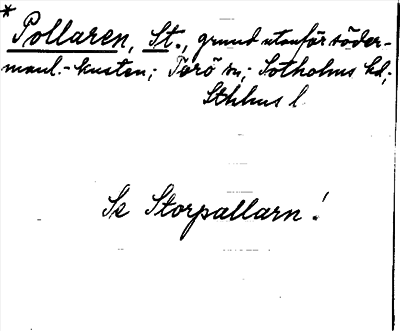 *
Pollaren, St., grund utanför söder-
manl.-kusten; Torö sn; Sotholms hd;
Sthlms l.
Se Storpallarn!